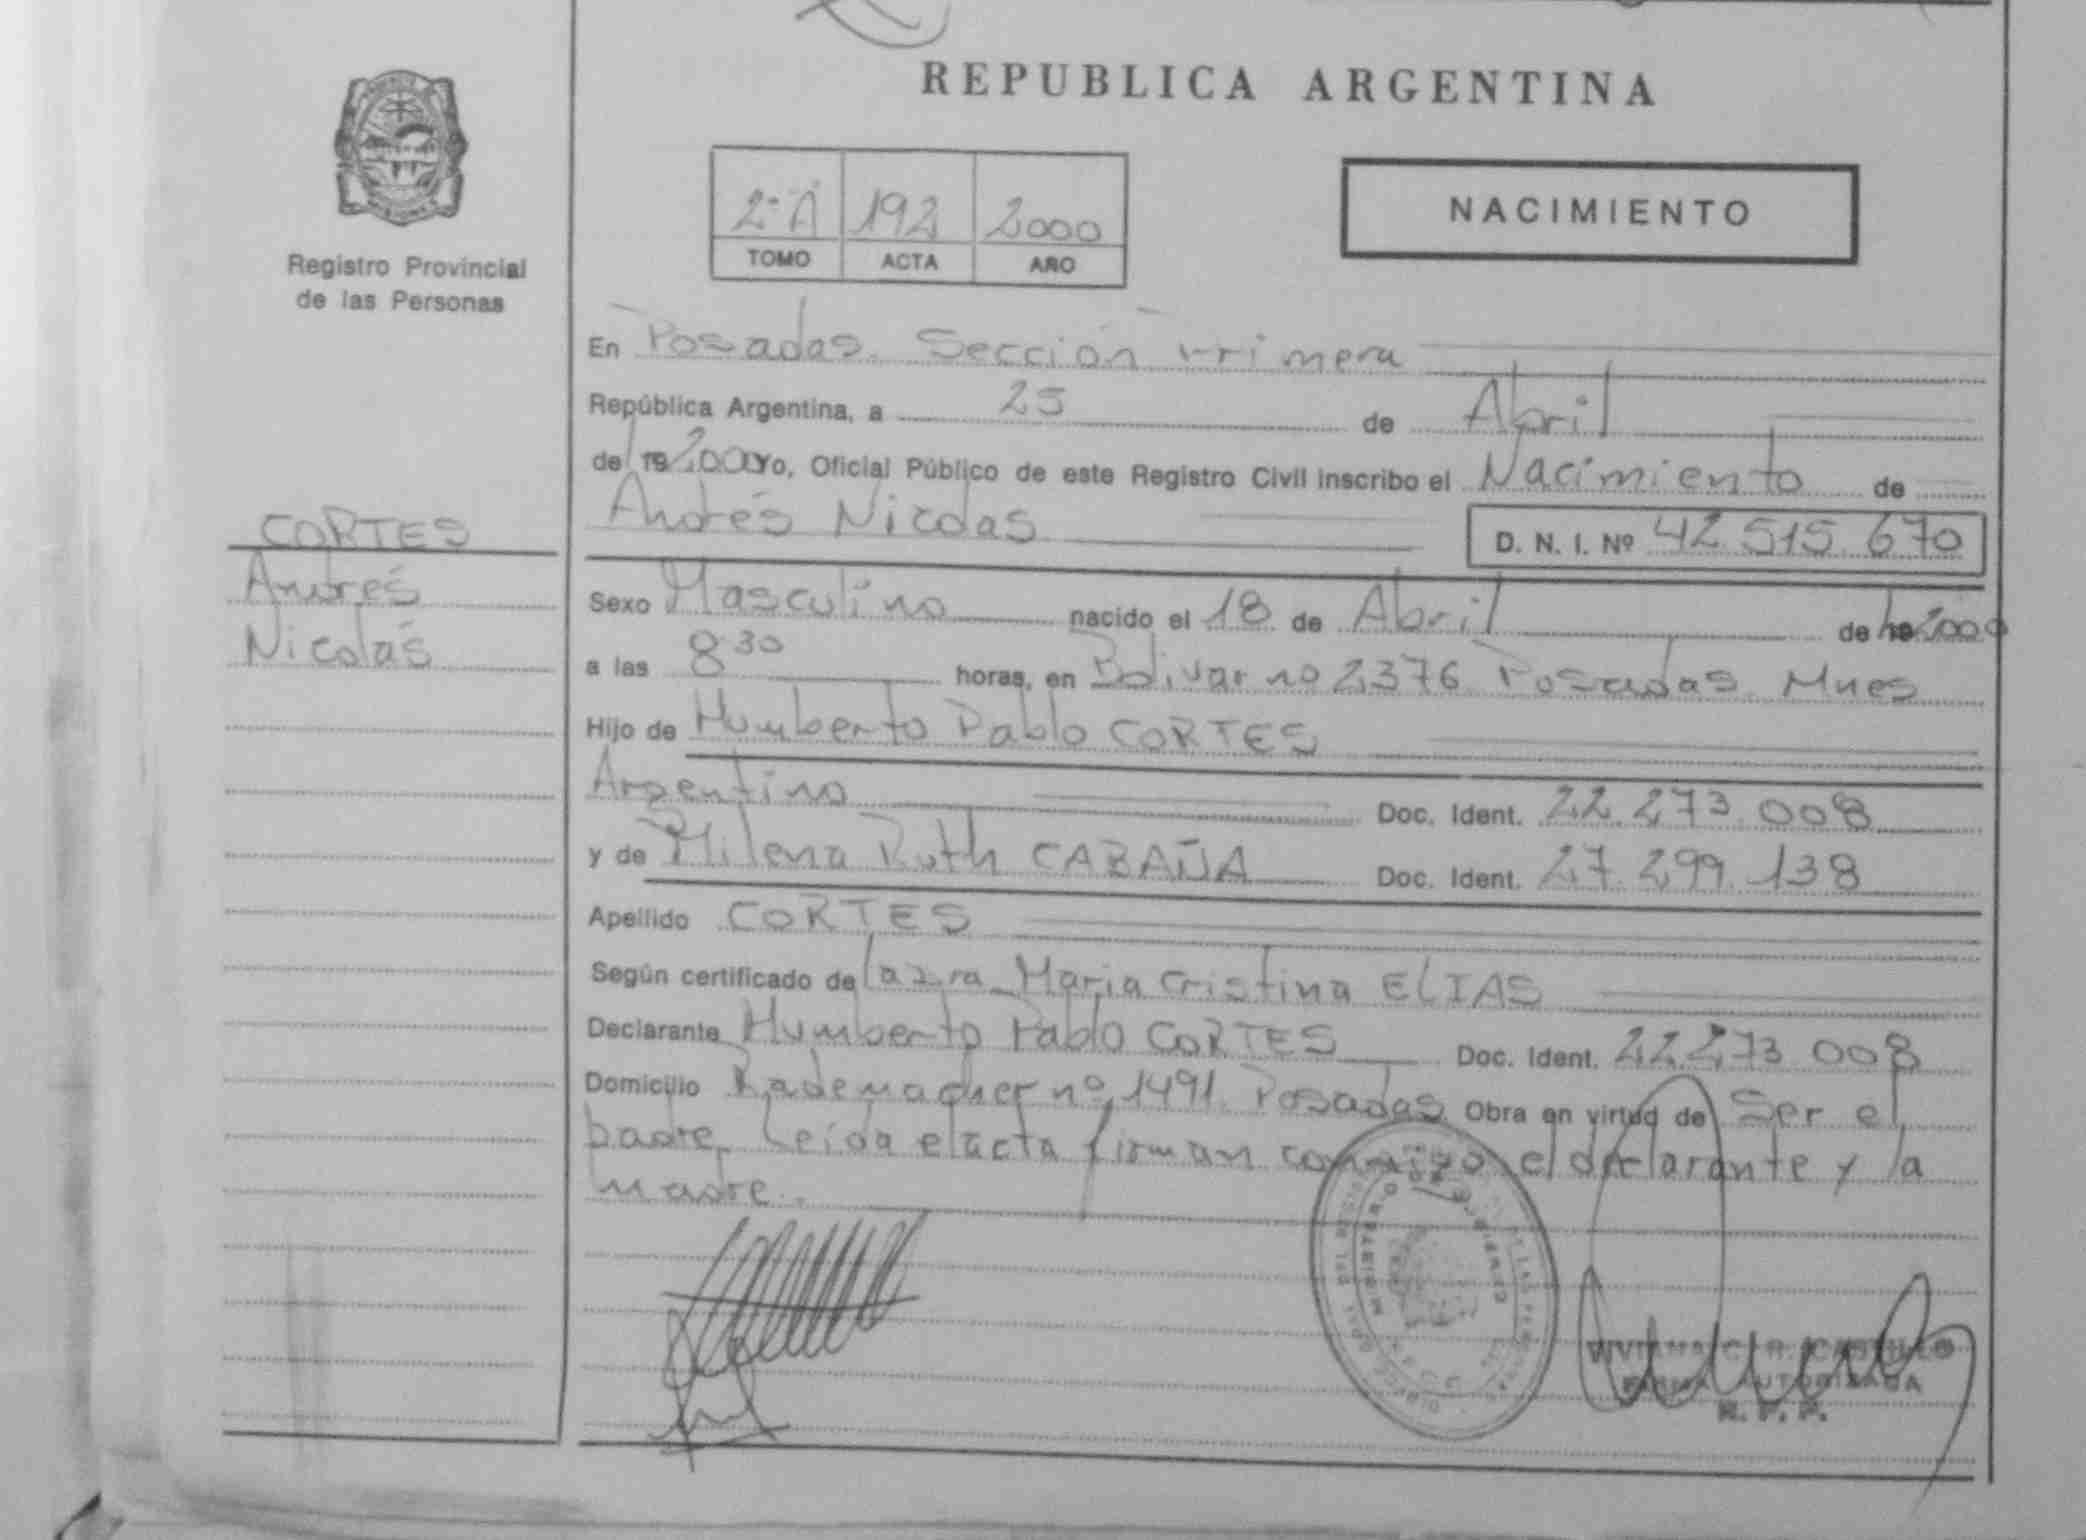 REPUBLICA ARGENTINA
Registro Provincial
de las Personas
2ºA 192 2000
TOMO ACTA AÑO
NACIMIENTO
En Posadas. Sección Primera
República Argentina, a 25 de Abril
de 19 2000 Yo, Oficial Público de este Registro Civil inscribo el Nacimiento de
Andrés Nicolas D. N. I. Nº 42.515.670
CORTES
Andrés
Nicolás
Sexo Masculino nacido el 18 de Abril de 19 2000
a las 8 30 horas, en Bolivar nº 2376 Posadas Mnes
Hijo de Humberto Pablo CORTES
Argentino Doc. Ident. 22.273.008
y de Milena Ruth CABAÑA Doc. Ident. 27.299.138
Apellido CORTES
Según certificado de la Maria Cristina ELIAS
Declarante Humberto Pablo CORTES Doc. Ident. 22.273.008
Domicilio Rademacher nº 1491. Posadas Obra en virtud de Ser el
padre. Leída el acta firman conmigo el declarante y la
madre.
MINISTERIO DE GOBIERNO
FIRMA AUTORIZADA
R. P. P.